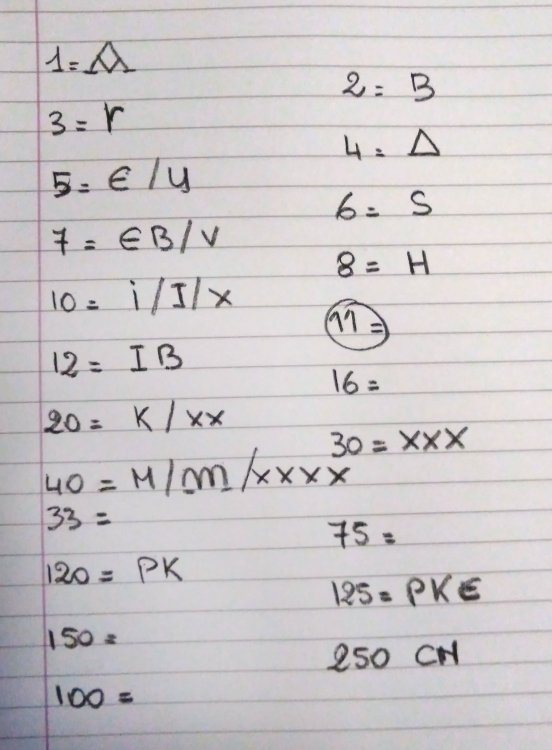 1=
2= B
3= r
4= Δ
5= ϵ/Ч
6= S
7= ϵB/V
8= H
10= i/I/x
11=
12= IB
16=
20= K/xx
30= xxx
40= M/m/xxxx
33=
75=
120= PK
125= PKϵ
150=
250 CN
100=